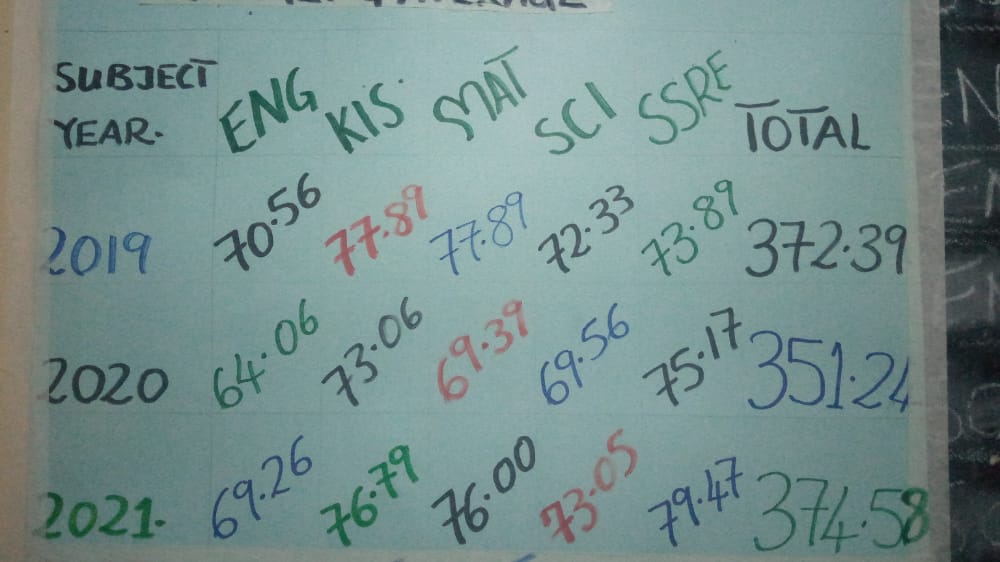 SUBJECT
YEAR. ENG KIS. MAT SCI SSRE TOTAL
2019 70.56 77.89 77.89 72.33 73.89 372.39
2020 64.06 73.06 69.39 69.56 75.17 351.24
2021. 69.26 76.79 76.00 73.05 79.47 374.58